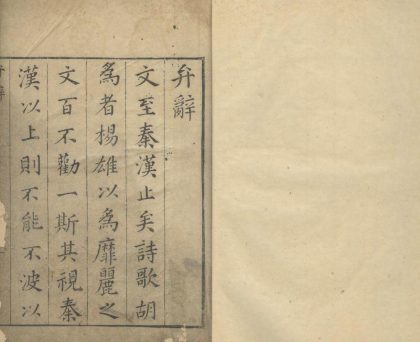 弁辭
文至秦漢止矣詩歌胡
為者楊雄以為靡麗之
文百不勸一斯其視秦
漢以上則不能不波以